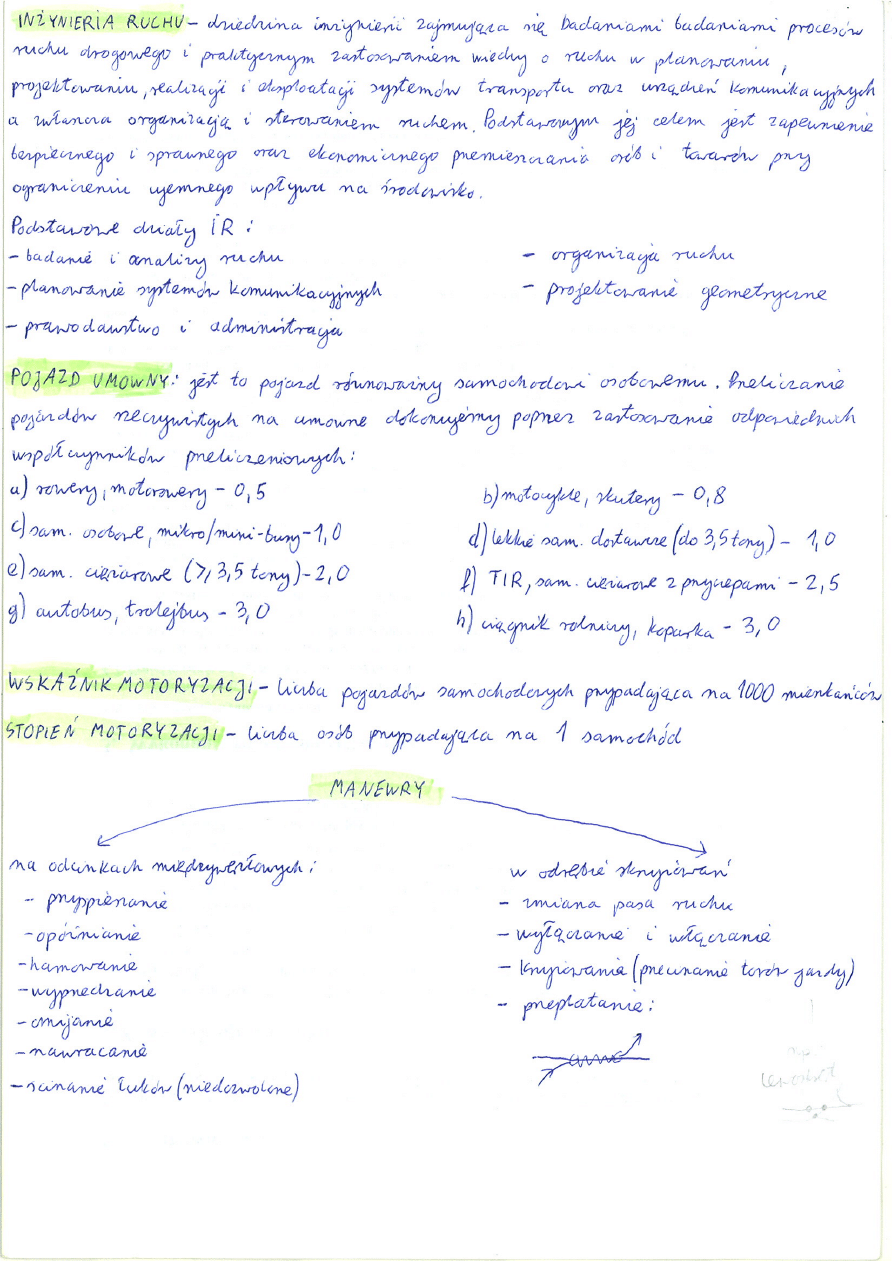 INŻYNIERIA RUCHU – dziedzina inżynierii zajmująca się badaniami badaniami procesów
ruchu drogowego i praktycznym zastosowaniem wiedzy o ruchu w planowaniu,
projektowaniu, realizacji i eksploatacji systemów transportu oraz urządzeń komunikacyjnych
a zwłaszcza organizacją i sterowaniem ruchem. Podstawowym jej celem jest zapewnienie
bezpiecznego i sprawnego oraz ekonomicznego przemieszczania osób i towarów przy
ograniczeniu ujemnego wpływu na środowisko.
Podstawowe działy IR :
– badanie i analizy ruchu
– organizacja ruchu
– planowanie systemów komunikacyjnych
– projektowanie geometryczne
– prawodawstwo i administracja
POJAZD UMOWNY: jest to pojazd równoważny samochodowi osobowemu. Przeliczanie
pojazdów rzeczywistych na umowne dokonujemy poprzez zastosowanie odpowiednich
współczynników przeliczeniowych:
a) rowery, motorowery – 0,5
b) motocykle, skutery – 0,8
c) sam. osobowe, mikro/mini-busy – 1,0
d) lekkie sam. dostawcze (do 3,5 tony) – 1,0
e) sam. ciężarowe (>, 3,5 tony) – 2,0
f) TIR, sam. ciężarowe z przyczepami – 2,5
g) autobus, trolejbus – 3,0
h) ciągnik rolniczy, koparka – 3,0
WSKAŹNIK MOTORYZACJI – liczba pojazdów samochodowych przypadająca na 1000 mieszkańców
STOPIEŃ MOTORYZACJI – liczba osób przypadająca na 1 samochód
MANEWRY
na odcinkach międzywęzłowych :
w obrębie skrzyżowań
– przyspieszanie
– zmiana pasa ruchu
– opóźnianie
– wyłączanie i włączanie
– hamowanie
– krzyżowania (przecinanie torów jazdy)
– wyprzedzanie
– przeplatanie :
– omijanie
– nawracanie
– ścinanie łuków (niedozwolone)